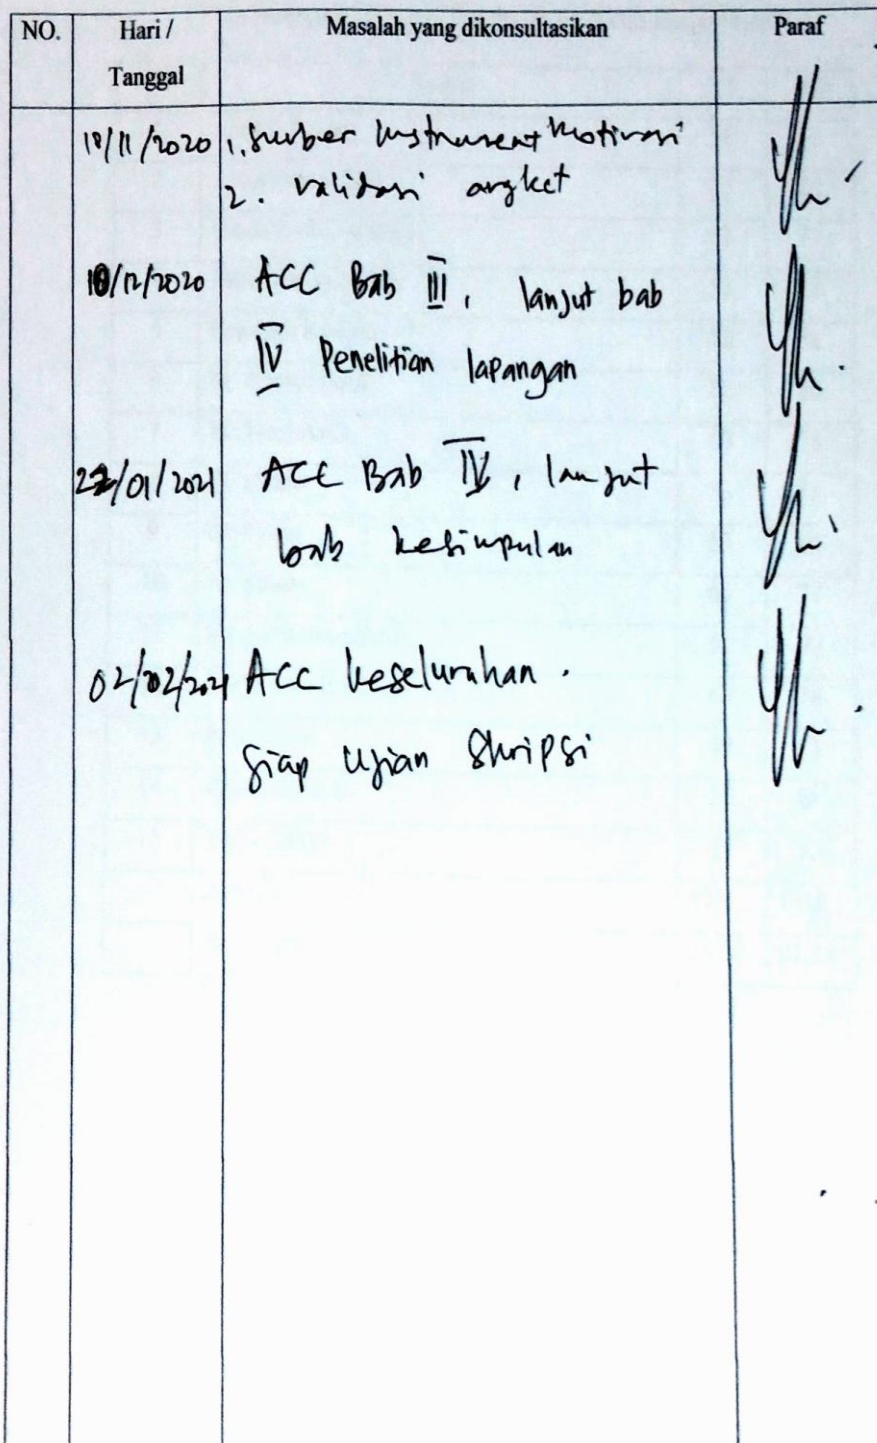 NO. Hari / Masalah yang dikonsultasikan Paraf
Tanggal
18/11/2020 1. Sumber Instrument Motivasi
2. validasi angket
10/12/2020 ACC Bab III, lanjut bab
IV Penelitian lapangan
22/01/2021 ACC Bab IV, lanjut
bab kesimpulan
02/02/2021 ACC keseluruhan.
Siap Ujian Skripsi